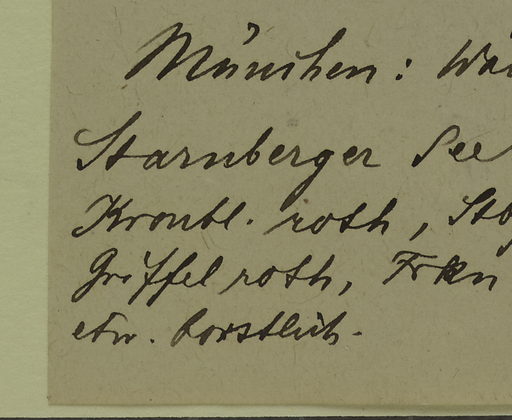 München: Wä
Starnberger See
Kronbl. roth, Sto
Griffel roth, Frkn
etw. borstlich.